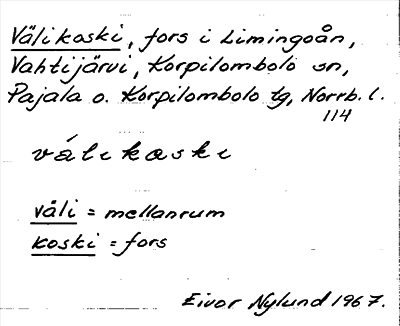 Välikoski, fors i Limingoån,
Vahtijärvi, Korpilombolo sn,
Pajala o. Korpilombolo tg, Norrb. l.
114
válikoski
väli = mellanrum
koski = fors
Eivor Nylund 1967.